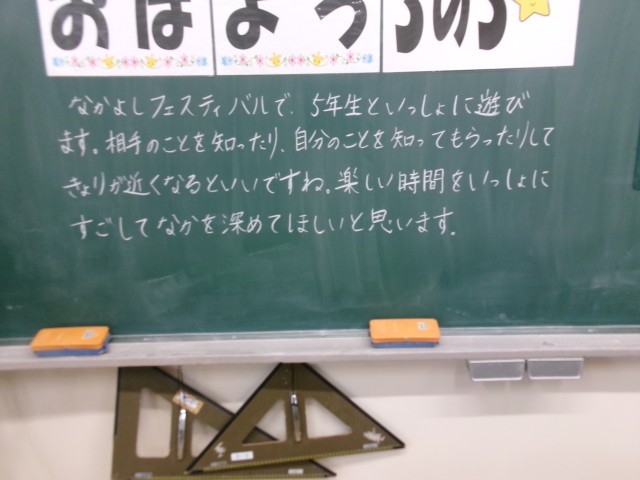 おはようの
なかよしフェスティバルで、5年生といっしょに遊び
ます。相手のことを知ったり、自分のことを知ってもらったりして
きょりが近くなるといいですね。楽しい時間をいっしょに
すごしてなかを深めてほしいと思います。